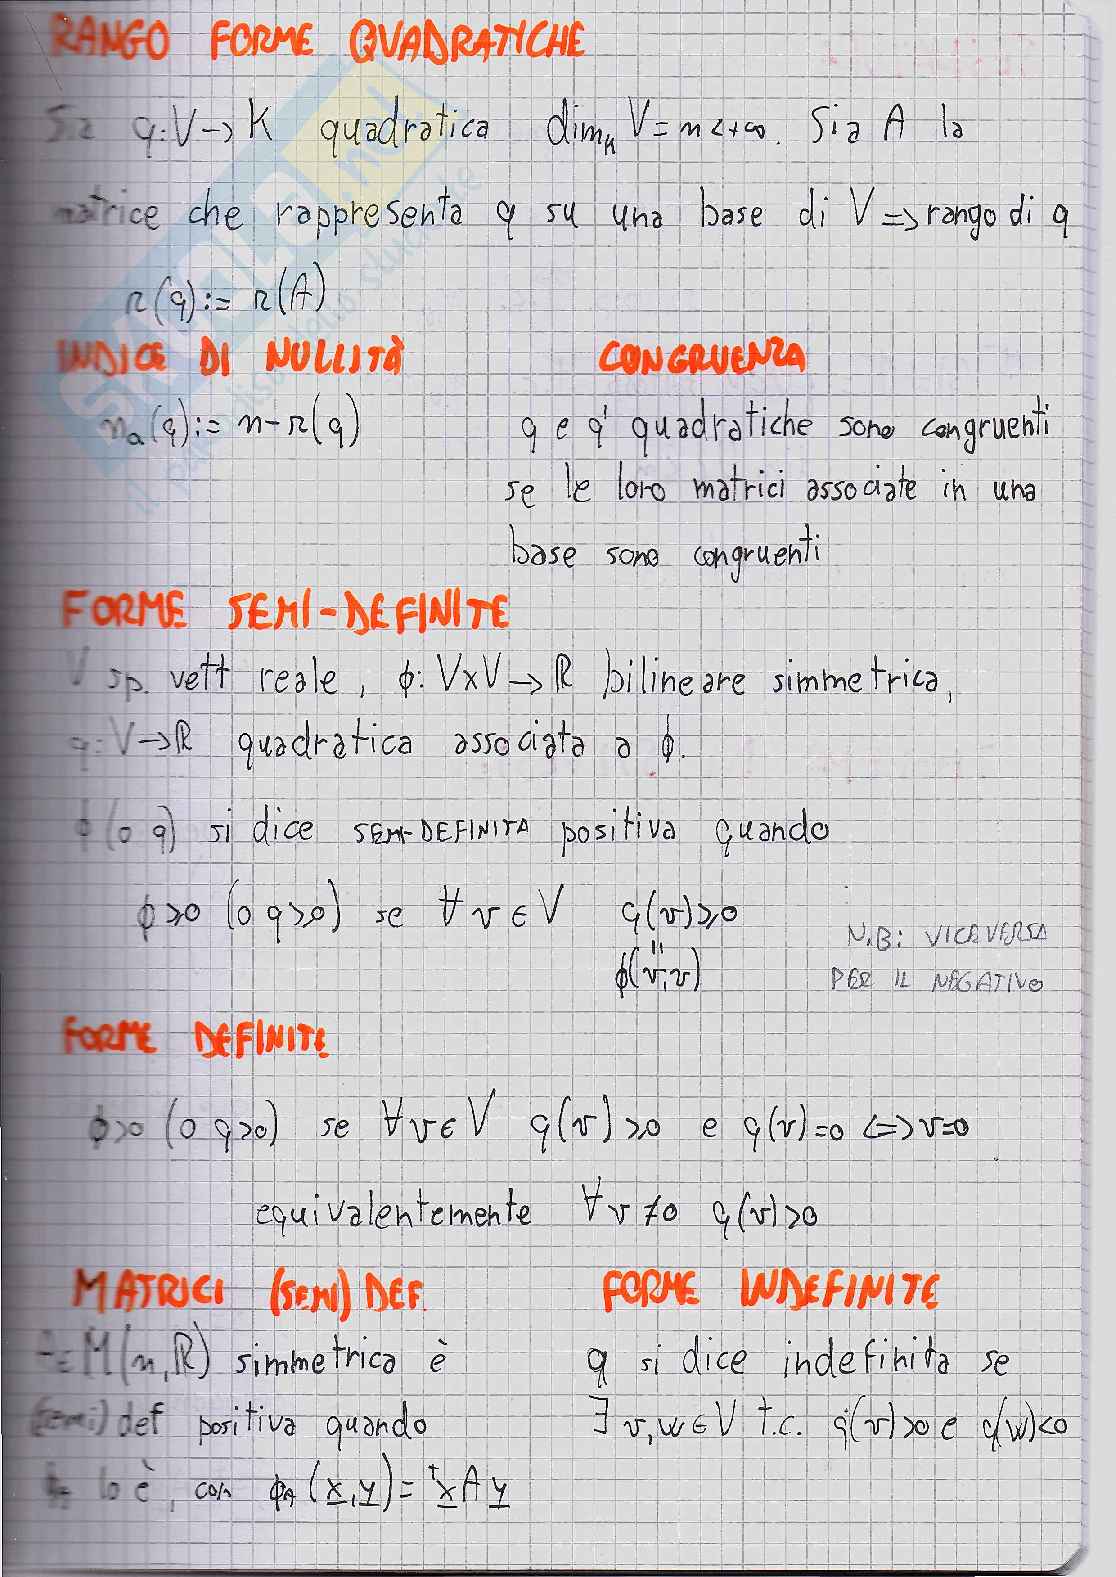 RANGO FORME QUADRATICHE
Sia q: V → K quadratica dim_K V = n < +∞. Sia A la
matrice che rappresenta q su una base di V => rango di q
r(q) := r(A)
INDICE DI NULLITÀ
n₀(q) := n - r(q)
CONGRUENZA
q e q' quadratiche sono congruenti
se le loro matrici associate in una
base sono congruenti
FORME SEMI-DEFINITE
V sp. vett reale, ϕ: V×V → ℝ bilineare simmetrica,
q: V → ℝ quadratica associata a ϕ.
ϕ (o q) si dice SEMI-DEFINITA positiva quando
ϕ ≥ 0 (o q ≥ 0) se ∀ v ∈ V q(v) ≥ 0
"
ϕ(v,v)
N.B: VICEVERSA
PER IL NEGATIVO
FORME DEFINITE
ϕ > 0 (o q > 0) se ∀ v ∈ V q(v) ≥ 0 e q(v) = 0 <=> v = 0
equivalentemente ∀ v ≠ 0 q(v) > 0
MATRICI (SEMI) DEF.
A ∈ M(n, ℝ) simmetrica è
(semi) def positiva quando
ϕ_A lo è, con ϕ_A (x, y) = ᵗx A y
FORME INDEFINITE
q si dice indefinita se
∃ v, w ∈ V t.c. q(v) > 0 e q(w) < 0
SKUOLA.net
il paradiso dello studente